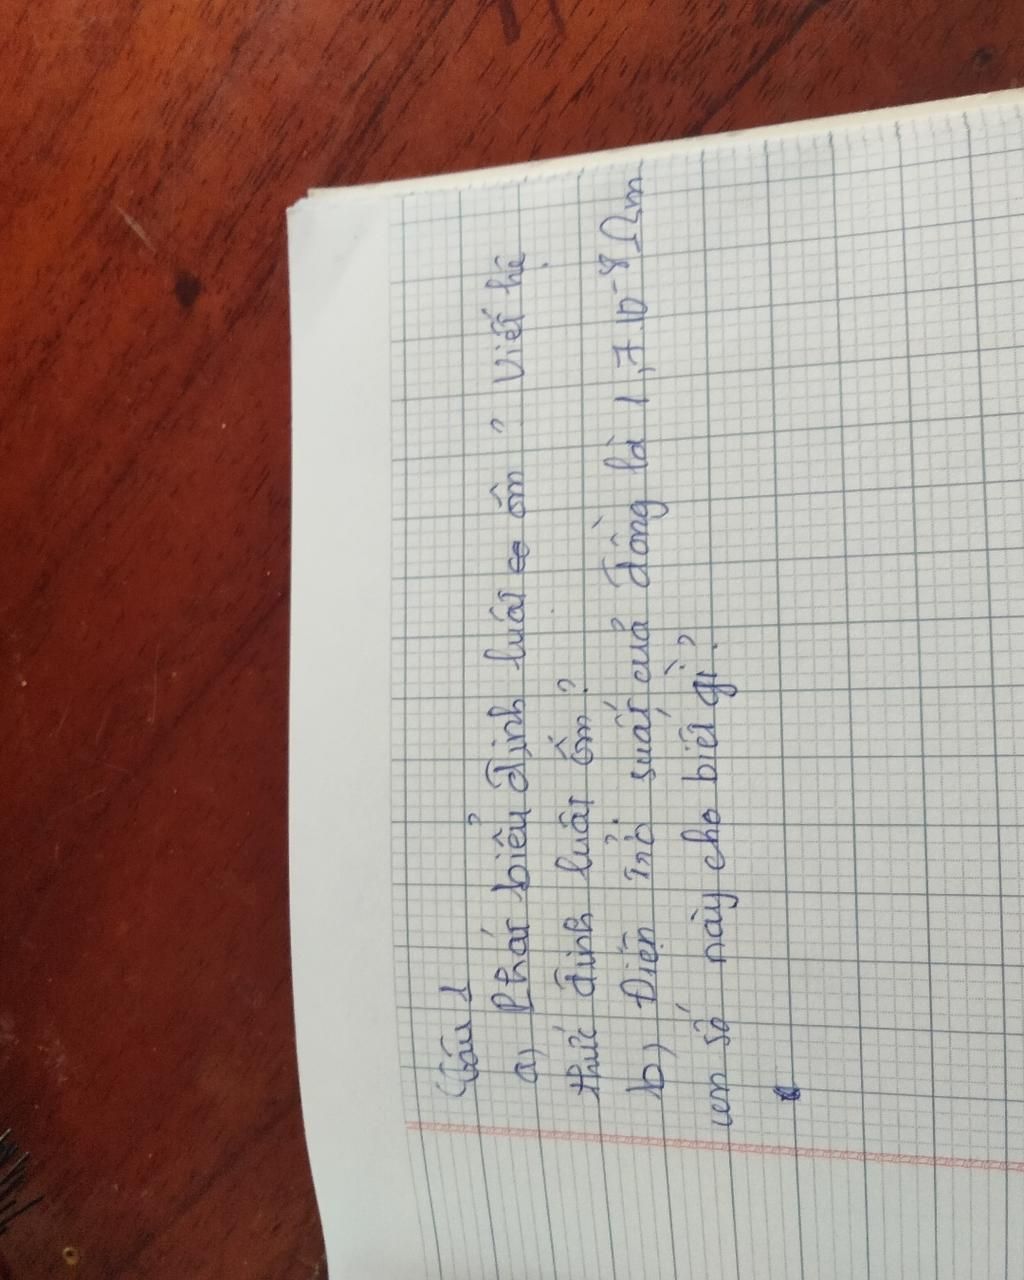 Câu 1
a) Phát biểu định luật ôm ? Viết hệ
thức định luật ôm ?
b) Điện trở suất của đồng là 1,7.10⁻⁸ Ωm
con số này cho biết gì ?